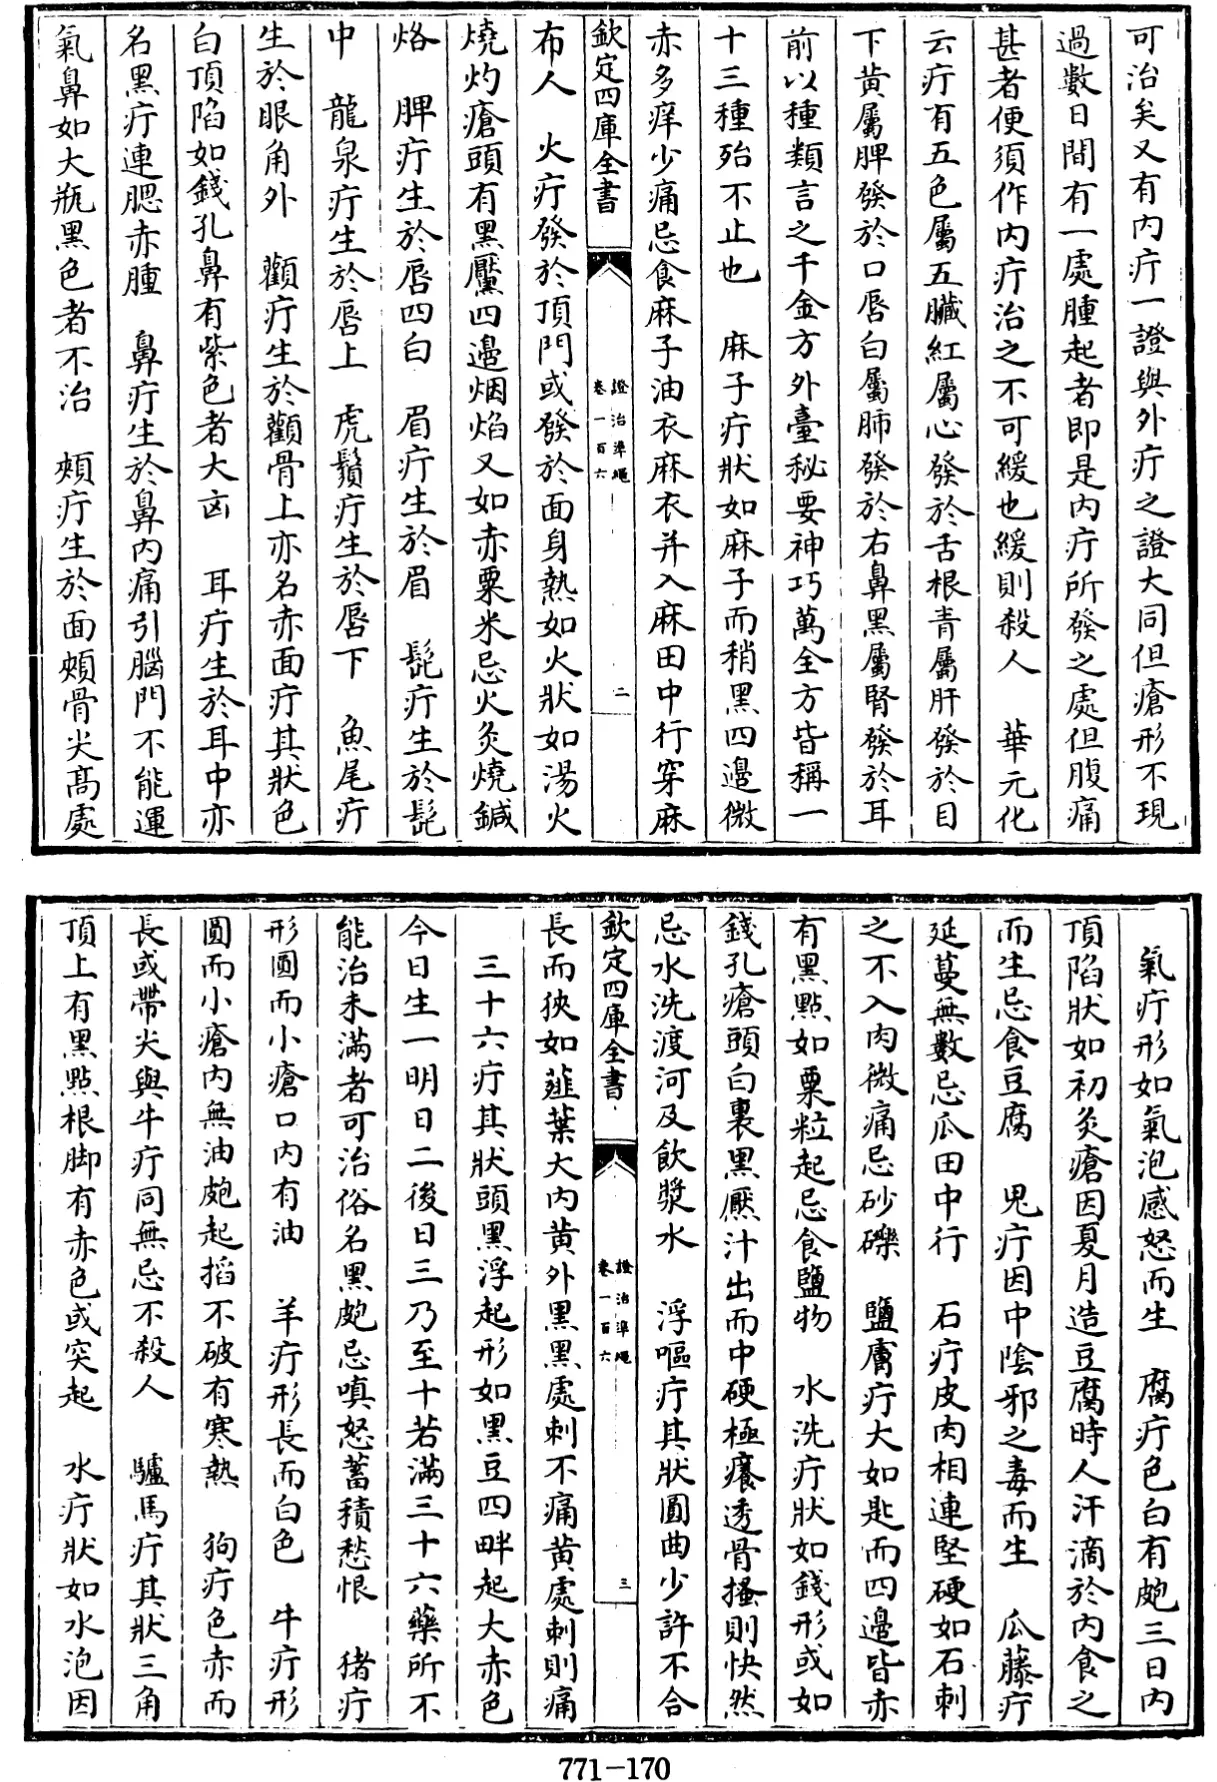 可治矣又有内疔一證與外疔之證大同但瘡形不現
過數日間有一處腫起者即是内疔所發之處但腹痛
甚者便須作内疔治之不可緩也緩則殺人　華元化
云疔有五色屬五臓紅屬心發於舌根青屬肝發於目
下黄屬脾發於口唇白屬肺發於右鼻黑屬腎發於耳
前以種類言之千金方外臺秘要神巧萬全方皆稱一
十三種殆不止也　麻子疔狀如麻子而稍黑四邉微
赤多痒少痛忌食麻子油衣麻衣并入麻田中行穿麻
欽定四庫全書
證治準繩
卷一百六
二
布人　火疔發於頂門或發於面身熱如火狀如湯火
燒灼瘡頭有黑黶四邉烟焰又如赤粟米忌火灸燒鍼
烙　脾疔生於唇四白　眉疔生於眉　髭疔生於髭
中　龍泉疔生於唇上　虎鬚疔生於唇下　魚尾疔
生於眼角外　顴疔生於顴骨上亦名赤面疔其狀色
白頂陷如錢孔鼻有紫色者大凶　耳疔生於耳中亦
名黑疔連腮赤腫　鼻疔生於鼻内痛引腦門不能運
氣鼻如大瓶黑色者不治　頰疔生於面頰骨尖髙處
氣疔形如氣泡感怒而生　腐疔色白有皰三日内
頂陷狀如初灸瘡因夏月造豆腐時人汗滴於内食之
而生忌食豆腐　鬼疔因中陰邪之毒而生　瓜藤疔
延蔓無數忌瓜田中行　石疔皮肉相連堅硬如石刺
之不入肉微痛忌砂礫　鹽膚疔大如匙而四邉皆赤
有黑㸃如粟粒起忌食鹽物　水洗疔狀如錢形或如
錢孔瘡頭白裏黑黶汁出而中硬極癢透骨搔則快然
忌水洗渡河及飲漿水　浮漚疔其狀圓曲少許不合
欽定四庫全書
證治準繩
卷一百六
三
長而狹如薤葉大内黄外黑黑處刺不痛黄處刺則痛
三十六疔其狀頭黑浮起形如黑豆四畔起大赤色
今日生一明日二後日三乃至十若滿三十六藥所不
能治未滿者可治俗名黑皰忌嗔怒蓄積愁恨　猪疔
形圓而小瘡口内有油　羊疔形長而白色　牛疔形
圓而小瘡内無油皰起掐不破有寒熱　狗疔色赤而
長或帶尖與牛疔同無忌不殺人　驢馬疔其狀三角
頂上有黑㸃根脚有赤色或突起　水疔狀如水泡因
771-170